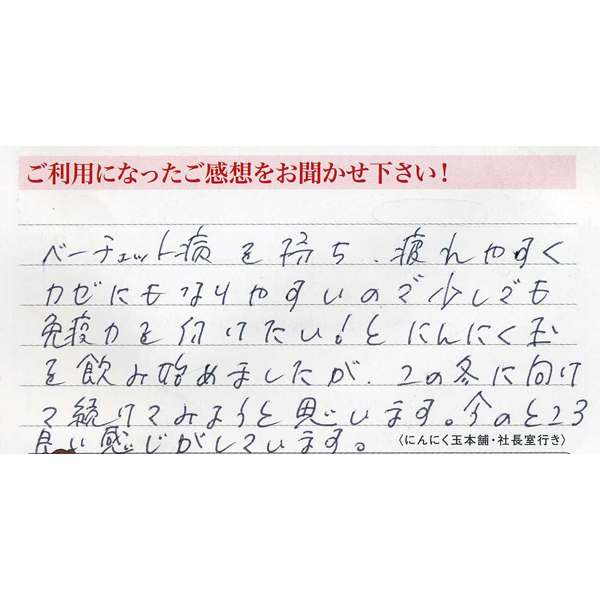 ご利用になったご感想をお聞かせ下さい！
ベーチェット病を持ち、疲れやすく
カゼにもなりやすいので少しでも
免疫力を付けたい！とにんにく玉
を飲み始めましたが、この冬に向け
て続けてみようと思います。今のところ
良い感じがしています。
〈にんにく玉本舗・社長室行き〉